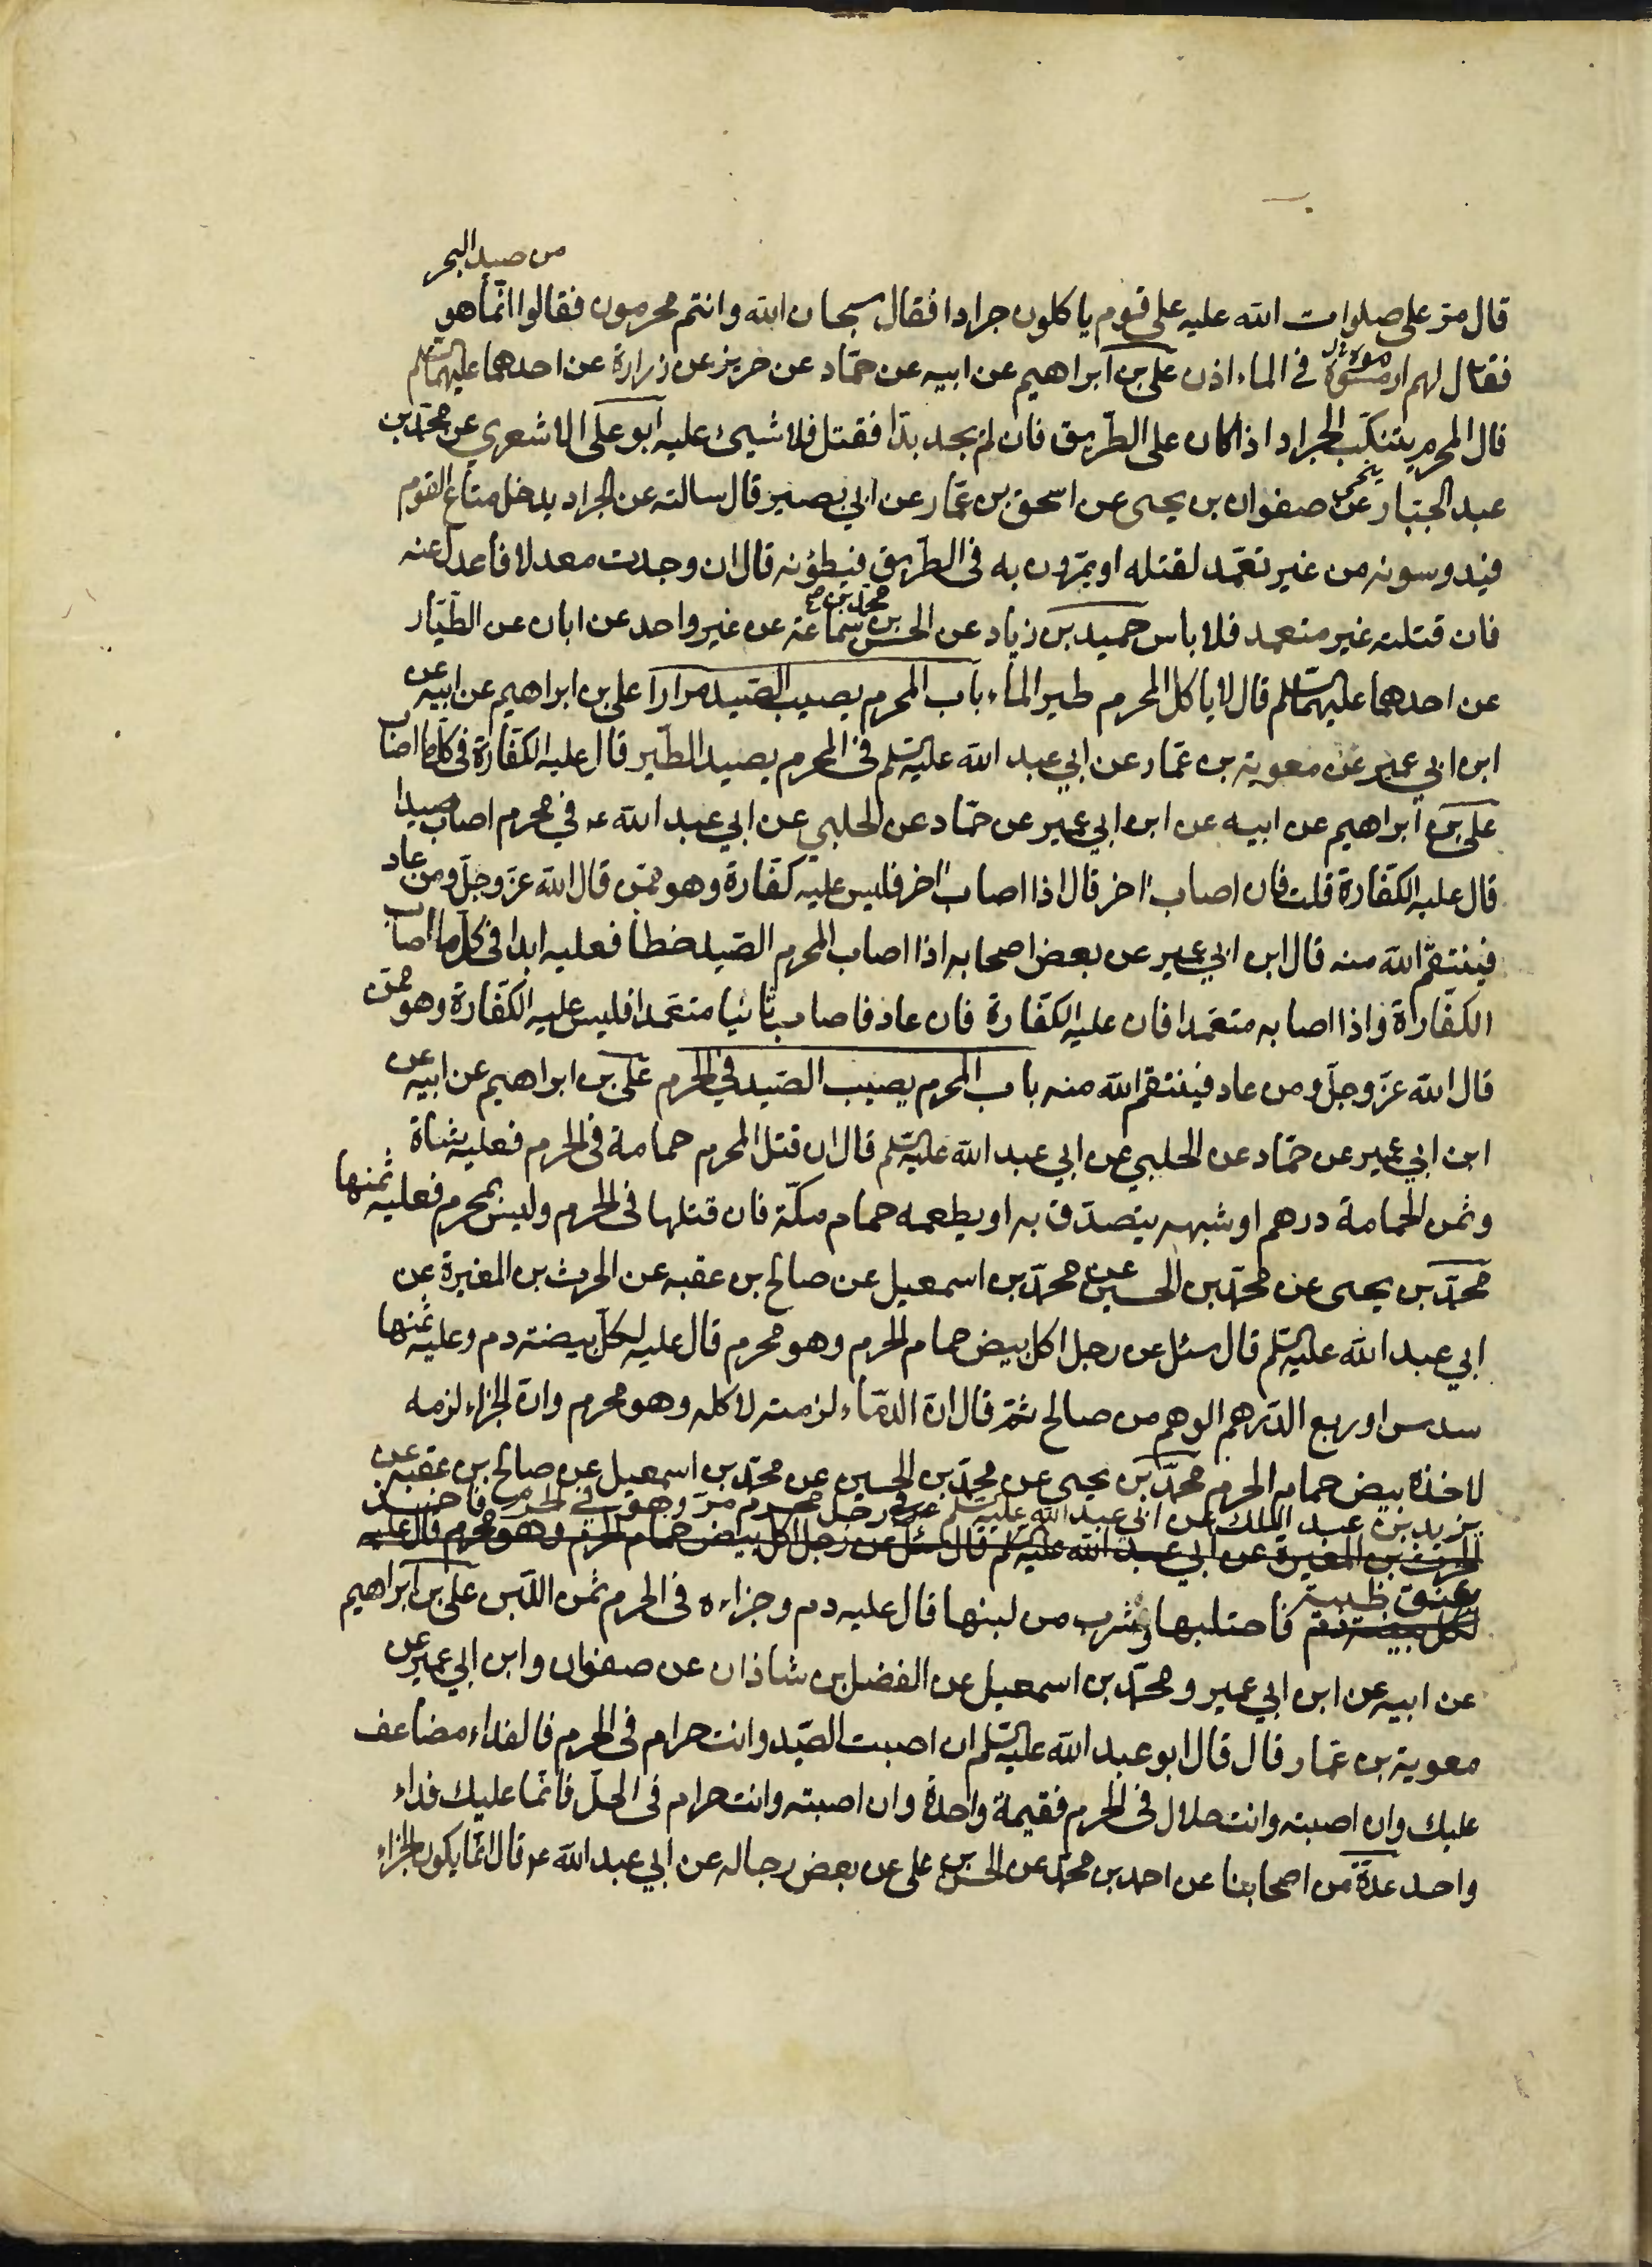 من صيد البحر
قال مرّ على صلوات الله عليه على قوم ياكلون جرادا فقال سبحان الله وانتم محرمون فقالوا انّما هو
فقال لهم ارمسوه في الماء اذن علي بن ابراهيم عن ابيه عن حمّاد عن حريز عن زرارة عن احدهما عليهما السلم
قال المحرم يتنكّب الجراد اذا كان على الطّريق فان لم يجد بدّا فقتل فلا شيئ عليه ابو علي الاشعري عن محمّد بن
عبد الجبّار عن صفوان بن يحيى عن اسحق بن عمّار عن ابي بصير قال سالته عن الجراد يدخل متاع القوم
فيدوسونه من غير تعمّد لقتله او يمّرون به في الطّريق فيطؤنه قال ان وجدت معدلا فاعدل عنه
محمّد بن صح
فان قتلته غير متعمد فلا باس حميد بن زياد عن الحسن بن سماعة عن غير واحد عن ابان عن الطّيّار
عن احدهما عليهما السلم قال لا ياكل المحرم طير الماء باب المحرم يصيب الصّيد مرارا علي بن ابراهيم عن ابيه عن
ابن ابي عمير عن معوية بن عمّار عن ابي عبد الله عليه السلم في المحرم يصيد الطّير قال عليه الكفّارة في كل ما اصاب
علي بن ابراهيم عن ابيه عن ابن ابي عمير عن حمّاد عن الحلبي عن ابي عبد الله ع في محرم اصاب صيدا
قال عليه الكفّارة قلت فان اصاب اخر قال اذا اصاب اخر فليس عليه كفّارة وهو ممّن قال الله عزّ وجلّ ومن عاد
فينتقم الله منه قال ابن ابي عمير عن بعض اصحابه اذا اصاب المحرم الصّيد خطأ فعليه ابدا في كل ما اصاب
الكفّاراة واذا اصابه متعمّدا فان عليه الكفّارة فان عاد فاصاب ثانيا متعمّدا فليس عليه الكفّارة وهو ممّن
قال الله عزّ وجلّ ومن عاد فينتقم الله منه باب المحرم يصيب الصّيد في الحرم علي بن ابراهيم عن ابيه عن
ابن ابي عمير عن حمّاد عن الحلبي عن ابي عبد الله عليه السلم قال ان قتل المحرم حمامة في الحرم فعليه شاة
وثمن الحمامة درهم او شبهه يتصدّق به او يطعمه حمام مكّة فان قتلها في الحرم وليس بمحرم فعليه ثمنها
محمّد بن يحيى عن محمّد بن الحسين عن محمّد بن اسمعيل عن صالح بن عقبه عن الحرث بن المغيرة عن
ابي عبد الله عليه السلم قال سئل عن رجل اكل بيض حمام الحرم وهو محرم قال عليه لكلّ بيضة دم وعليه ثمنها
سدس او ربع الدّرهم الوهم من صالح ثمّ قال انّ الدّماء لزمته لاكله وهو محرم وانّ الجزاء لزمه
لاخذه بيض حمام الحرم محمّد بن يحيى عن محمّد بن الحسين عن محمّد بن اسمعيل عن صالح بن عقبه عن
يزيد بن عبد الملك عن ابي عبد الله عليه السلم في رجل محرم مرّ وهو في الحرم فاخذ
الحرث بن المغيرة عن ابي عبد الله عليه السلم قال سئل عن رجل اكل بيض حمام الحرم وهو محرم قال عليه
عنق ظبية
لكل بيضة دم فاحتلبها وشرب من لبنها قال عليه دم وجزاءه في الحرم ثمن اللّبن علي بن ابراهيم
عن ابيه عن ابن ابي عمير ومحمّد بن اسمعيل عن الفضل بن شاذان عن صفوان وابن ابي عمير عن
معوية بن عمار قال قال ابو عبد الله عليه السلم ان اصبت الصّيد وانت حرام في الحرم فالفداء مضاعف
عليك وان اصبته وانت حلال في الحرم فقيمة واحدة وان اصبته وانت حرام في الحلّ فانّما عليك فداء
واحد عدّة من اصحابنا عن احمد بن محمّد عن الحسن بن علي عن بعض رجاله عن ابي عبد الله ع قال انّما يكون الجزاء